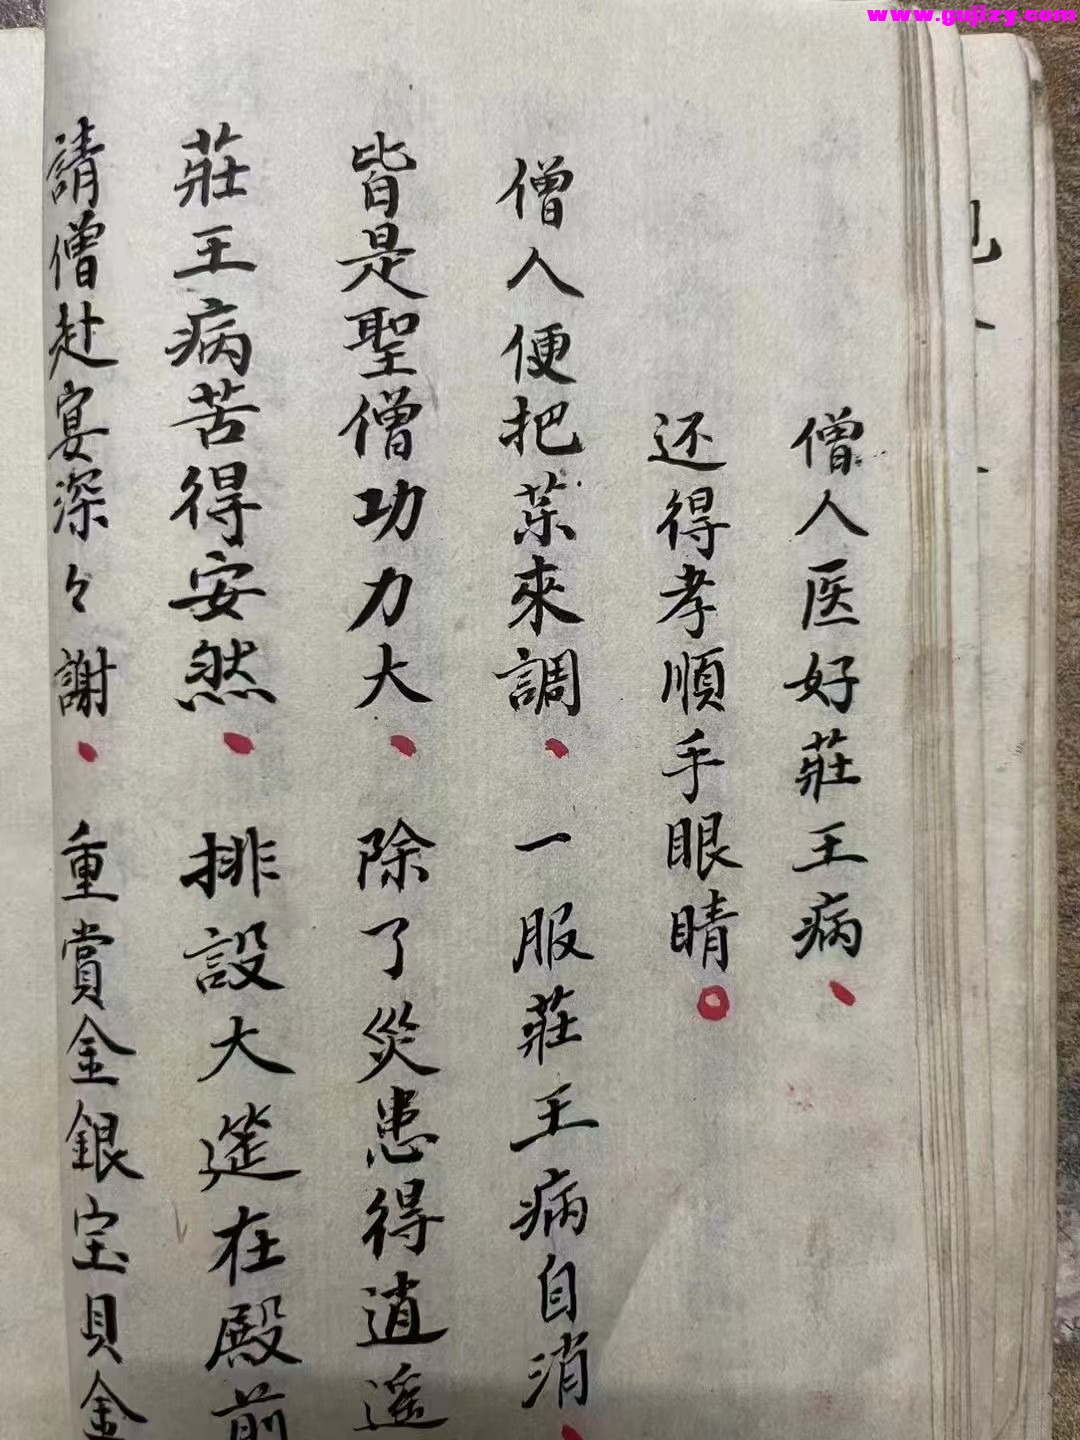 www.gujizy.com
僧人医好莊王病
还得孝順手眼睛
僧人便把菜來調 一服莊王病自消
皆是聖僧功力大 除了災患得逍遥
莊王病苦得安然 排設大筵在殿前
請僧赴宴深々謝 重賞金銀宝貝金